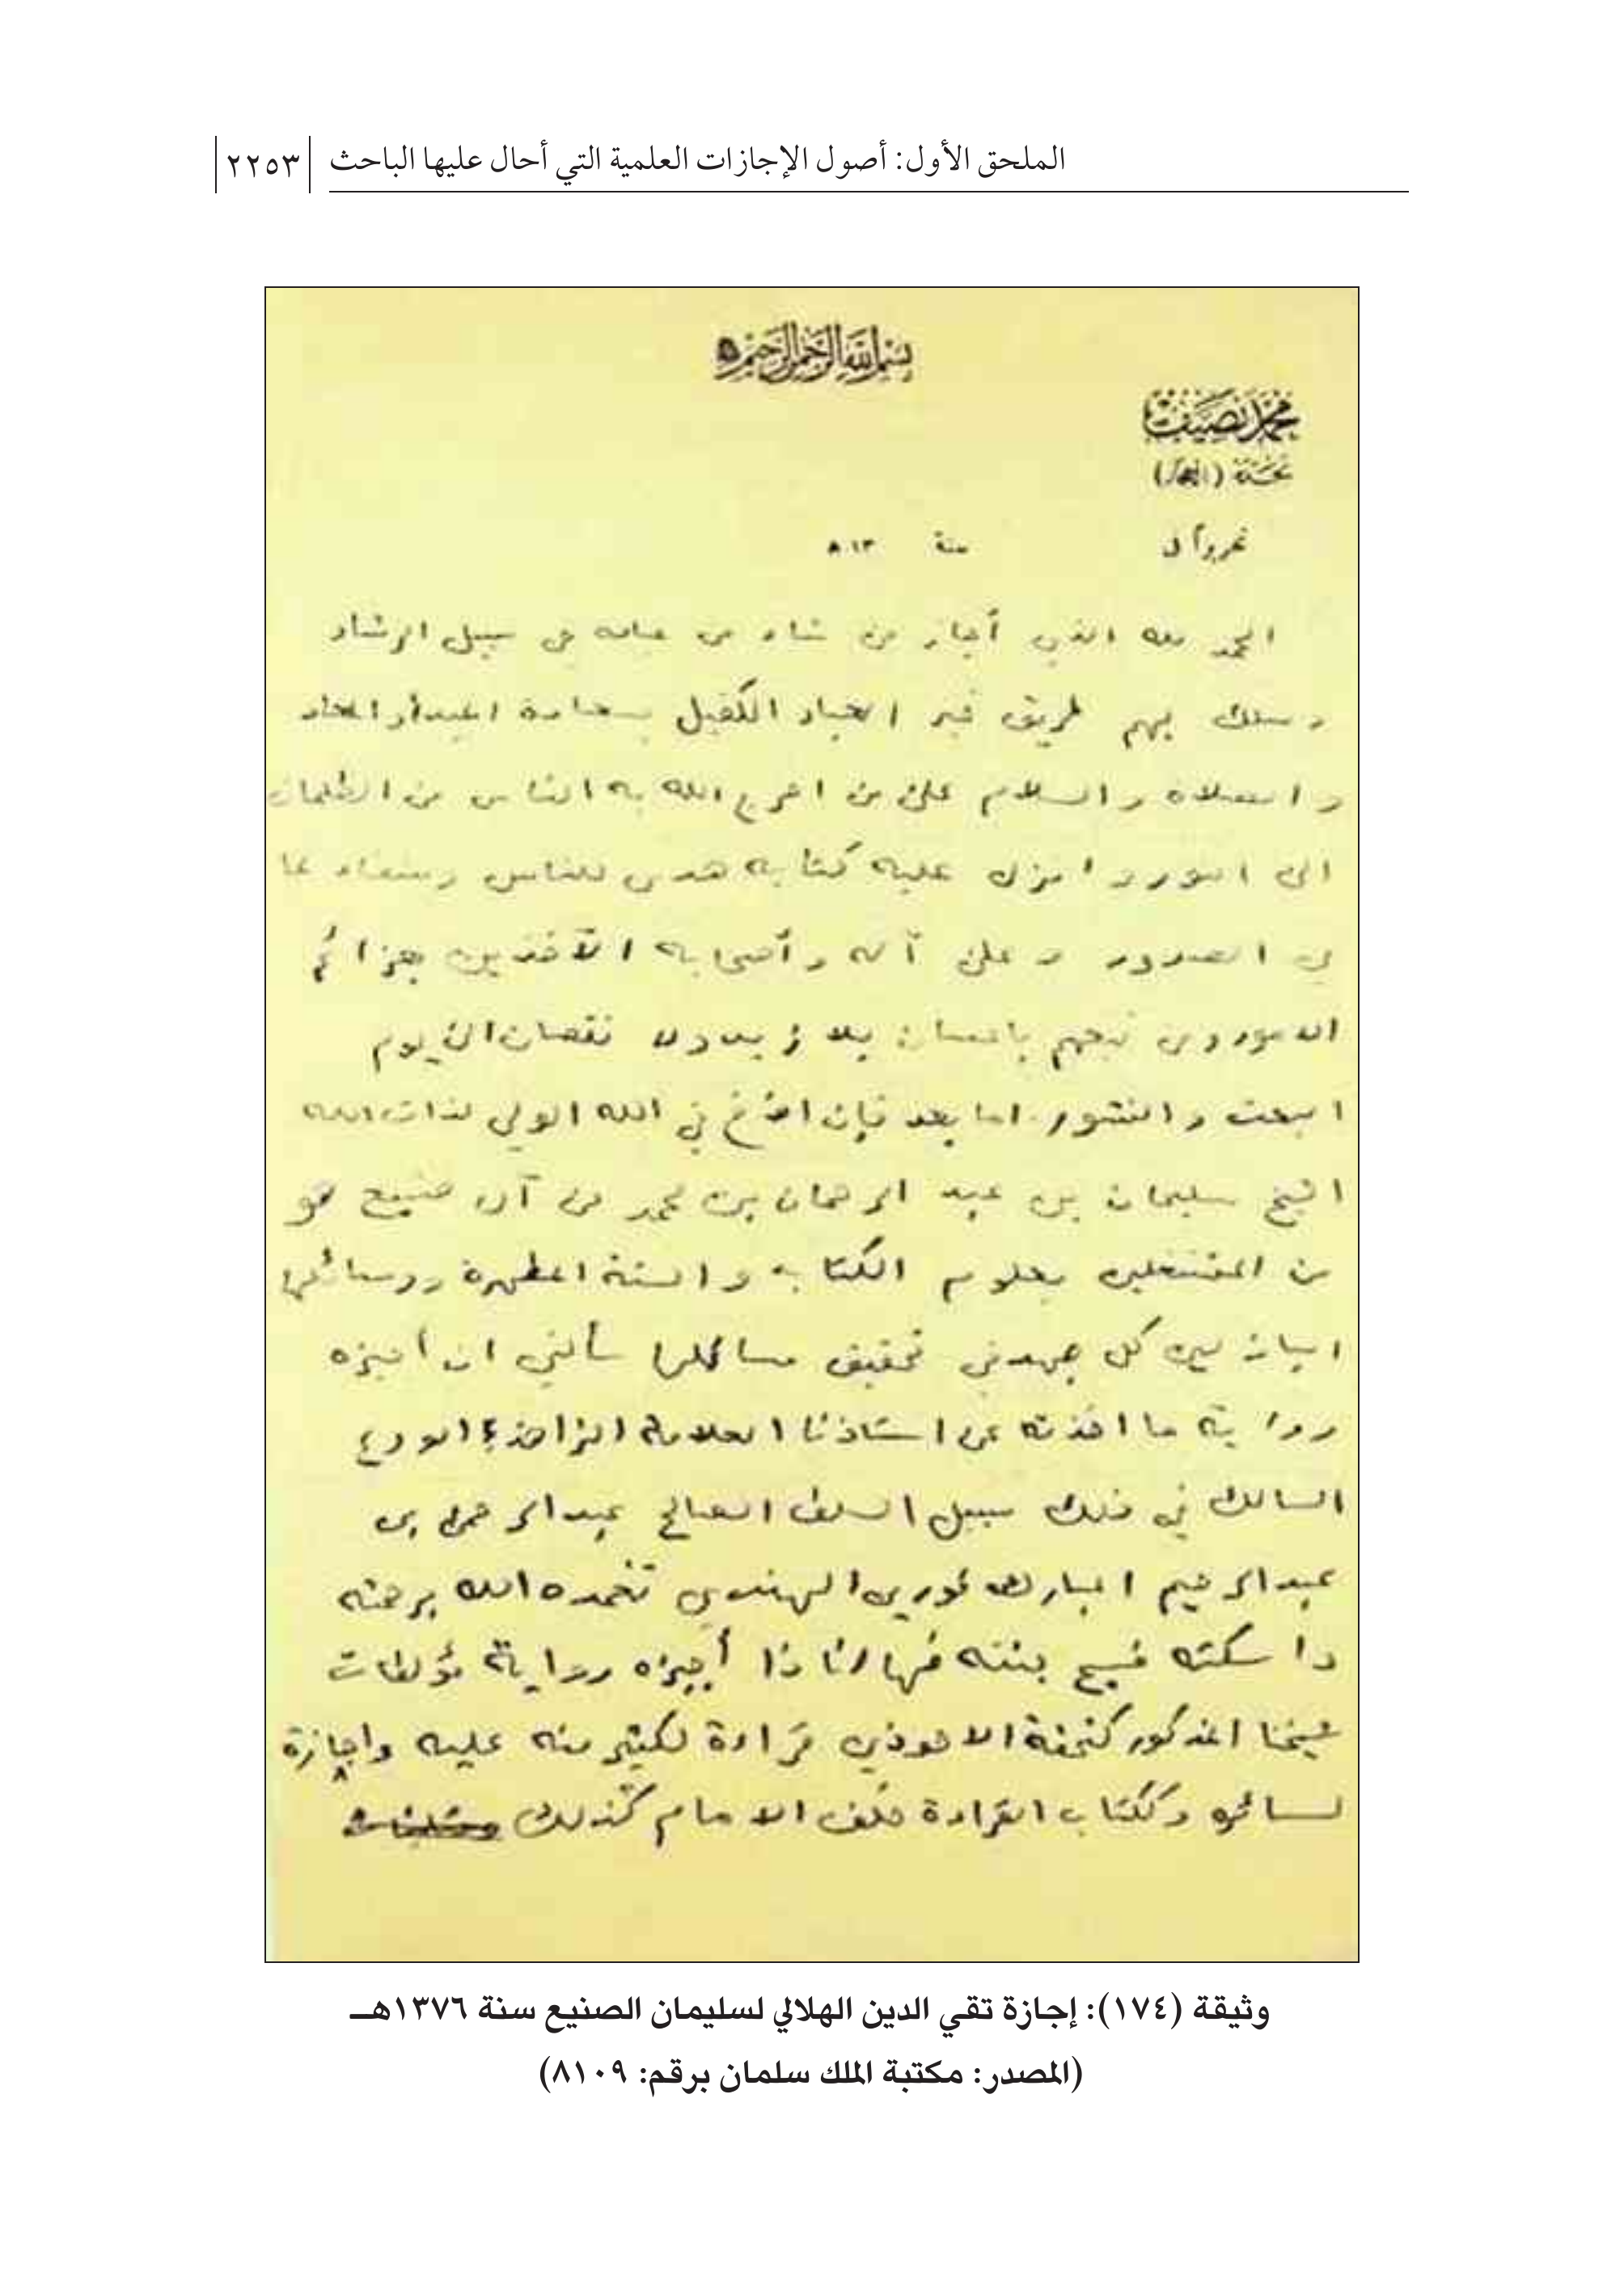 الملحق الأول: أصول الإجازات العلمية التي أحال عليها الباحث ٢٢٥٣
بسم الله الرحمن الرحيم
محمد نصيف
بجدة (الحجاز)
تحريراً في سنة ١٣ ه
الحمد لله الذي أجاز من شاء من عباده في سبيل الرشاد
وسلك بهم طريق خير العباد الكفيل بسعادة المبدأ والمعاد
والصلاة والسلام على من اخرج الله به الناس من الظلمات
الى النور وانزل عليه كتابه هدى للناس وشفاء لما
في الصدور وعلى آله وأصحابه الآخذين بعزائم
الامور ومن تبعهم باحسان بلا زيد ولا نقصان الى يوم
البعث والنشور. اما بعد فإن الاخ في الله الولي لذات الله
الشيخ سليمان بن عبد الرحمان بن محمد من آل صنيع هو
من المشتغلين بعلوم الكتاب والسنة المطهرة ووسائلها
كل جهد في تحقيق مسائلها سألني ان أجيزه
رواية ما اخذته عن استاذنا العلامة الزاهد الورع
السالك في ذلك سبيل السلف الصالح عبد الرحمن بن
عبد الرحيم المباركفوري الهندي تغمده الله برحمته
واسكنه فسيح جنته فها انا ذا أجيزه رواية مؤلفات
شيخنا المذكور كتحفة الاحوذي قراءة لكثير منه عليه واجازة
لسائره وككتاب القراءة خلف الامام كذلك
وثيقة (١٧٤): إجازة تقي الدين الهلالي لسليمان الصنيع سنة ١٣٧٦هـ
(المصدر: مكتبة الملك سلمان برقم: ٨١٠٩)